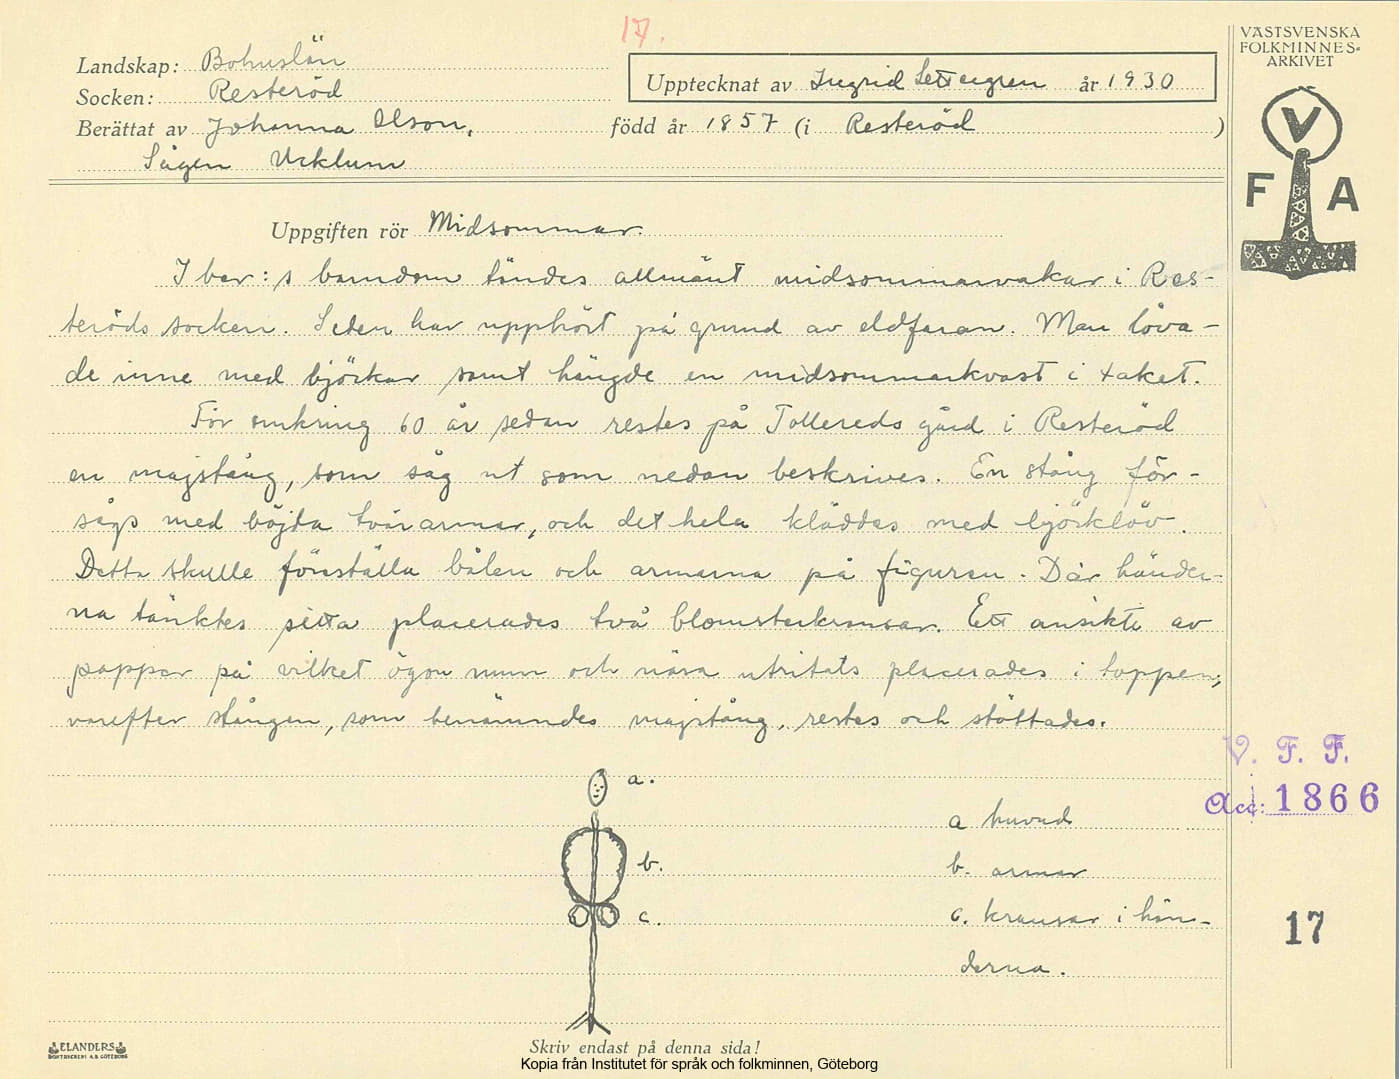 17.
VÄSTSVENSKA
FOLKMINNES-
ARKIVET
Landskap: Bohuslän
Socken: Resteröd
Upptecknat av Ingrid Settergren år 1930
Berättat av Johanna Olson, född år 1857 (i Resteröd )
Sågen Ucklum
V
F A
Uppgiften rör Midsommar.
I ber:s barndom tändes allmänt midsommarvakar i Res-
teröds socken. Seden har upphört på grund av eldfaran. Man löva-
de inne med björkar samt hängde en midsommarkvast i taket.
För omkring 60 år sedan restes på Tollereds gård i Resteröd
en majstång, som såg ut som nedan beskrives. En stång för-
sågs med böjda tvärarmar, och det hela kläddes med björklöv.
Detta skulle föreställa bålen och armarna på figuren. Där händer-
na tänktes sitta placerades två blomsterkransar. Ett ansikte av
papper på vilket ögon mun och näsa utritats placerades i toppen,
varefter stången, som benämndes majstång, restes och stöttades.
V. F. F.
Acc: 1866
a.
b.
c.
a huvud
b. armar
c. kransar i hän-
derna.
17
ELANDERS
BOKTRYCKERI A.B. GÖTEBORG
Skriv endast på denna sida!
Kopia från Institutet för språk och folkminnen, Göteborg